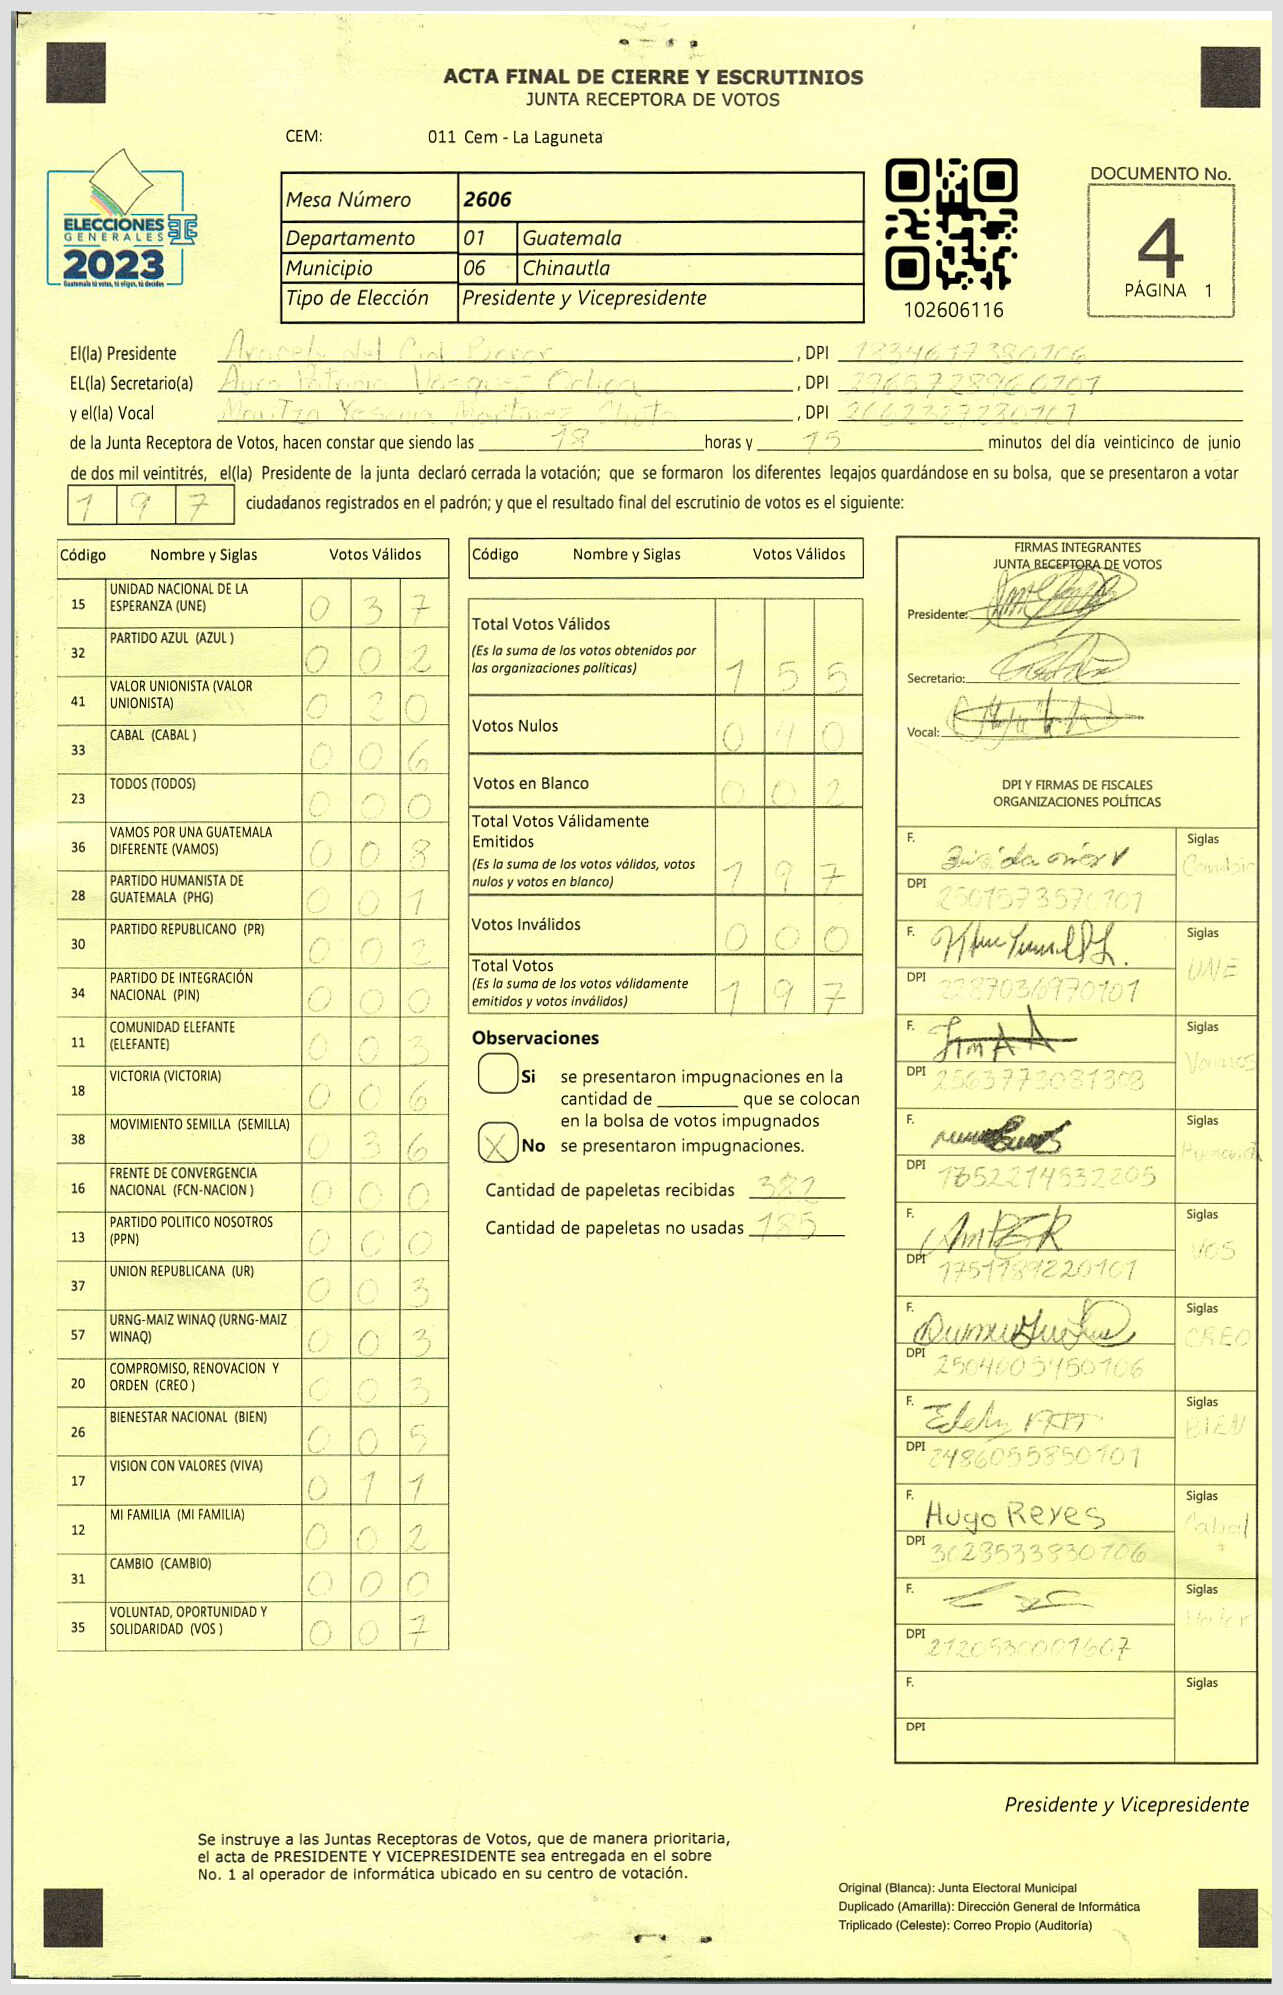 ACTA FINAL DE CIERRE Y ESCRUTINIOS
JUNTA RECEPTORA DE VOTOS
CEM: 011 Cem - La Laguneta
ELECCIONES
GENERALES
2023
Guatemala tú votas, tú eliges, tú decides
Mesa Número 2606
Departamento 01 Guatemala
Municipio 06 Chinautla
Tipo de Elección Presidente y Vicepresidente
102606116
DOCUMENTO No.
4
PÁGINA 1
El(la) Presidente Aracely del Cid , DPI 1834617380106
EL(la) Secretario(a) Vasquez Ochoa , DPI 2965728960101
y el(la) Vocal Maritza Yesenia Martinez , DPI 2062327230101
de la Junta Receptora de Votos, hacen constar que siendo las 18 horas y 15 minutos del día veinticinco de junio
de dos mil veintitrés, el(la) Presidente de la junta declaró cerrada la votación; que se formaron los diferentes legajos guardándose en su bolsa, que se presentaron a votar
197 ciudadanos registrados en el padrón; y que el resultado final del escrutinio de votos es el siguiente:
Código Nombre y Siglas Votos Válidos
15 UNIDAD NACIONAL DE LA ESPERANZA (UNE) 0 3 7
32 PARTIDO AZUL (AZUL ) 0 0 2
41 VALOR UNIONISTA (VALOR UNIONISTA) 0 2 0
33 CABAL (CABAL ) 0 0 6
23 TODOS (TODOS) 0 0 0
36 VAMOS POR UNA GUATEMALA DIFERENTE (VAMOS) 0 0 8
28 PARTIDO HUMANISTA DE GUATEMALA (PHG) 0 0 1
30 PARTIDO REPUBLICANO (PR) 0 0 2
34 PARTIDO DE INTEGRACIÓN NACIONAL (PIN) 0 0 0
11 COMUNIDAD ELEFANTE (ELEFANTE) 0 0 3
18 VICTORIA (VICTORIA) 0 0 6
38 MOVIMIENTO SEMILLA (SEMILLA) 0 3 6
16 FRENTE DE CONVERGENCIA NACIONAL (FCN-NACION ) 0 0 0
13 PARTIDO POLITICO NOSOTROS (PPN) 0 0 0
37 UNION REPUBLICANA (UR) 0 0 3
57 URNG-MAIZ WINAQ (URNG-MAIZ WINAQ) 0 0 3
20 COMPROMISO, RENOVACION Y ORDEN (CREO ) 0 0 3
26 BIENESTAR NACIONAL (BIEN) 0 0 5
17 VISION CON VALORES (VIVA) 0 1 1
12 MI FAMILIA (MI FAMILIA) 0 0 2
31 CAMBIO (CAMBIO) 0 0 0
35 VOLUNTAD, OPORTUNIDAD Y SOLIDARIDAD (VOS ) 0 0 7
Código Nombre y Siglas Votos Válidos
Total Votos Válidos
(Es la suma de los votos obtenidos por
las organizaciones políticas) 1 5 5
Votos Nulos 0 4 0
Votos en Blanco 0 0 2
Total Votos Válidamente
Emitidos
(Es la suma de los votos válidos, votos
nulos y votos en blanco) 1 9 7
Votos Inválidos 0 0 0
Total Votos
(Es la suma de los votos válidamente
emitidos y votos inválidos) 1 9 7
Observaciones
Si se presentaron impugnaciones en la
cantidad de ________ que se colocan
en la bolsa de votos impugnados
X No se presentaron impugnaciones.
Cantidad de papeletas recibidas 382
Cantidad de papeletas no usadas 185
FIRMAS INTEGRANTES
JUNTA RECEPTORA DE VOTOS
Presidente:
Secretario:
Vocal:
DPI Y FIRMAS DE FISCALES
ORGANIZACIONES POLÍTICAS
F. Siglas
DPI 2501573570101
F. Siglas UNE
DPI 2287036970101
F. Siglas Vamos
DPI 2563773081308
F. Siglas
DPI 1752214532205
F. Siglas VOS
DPI 1751189220101
F. Siglas CREO
DPI 2504005450106
F. Siglas BIEN
DPI 2486055850101
F. Hugo Reyes Siglas Cabal
DPI 3028533830106
F. Siglas
DPI 2120530001607
F. Siglas
DPI
Presidente y Vicepresidente
Se instruye a las Juntas Receptoras de Votos, que de manera prioritaria,
el acta de PRESIDENTE Y VICEPRESIDENTE sea entregada en el sobre
No. 1 al operador de informática ubicado en su centro de votación.
Original (Blanca): Junta Electoral Municipal
Duplicado (Amarilla): Dirección General de Informática
Triplicado (Celeste): Correo Propio (Auditoría)